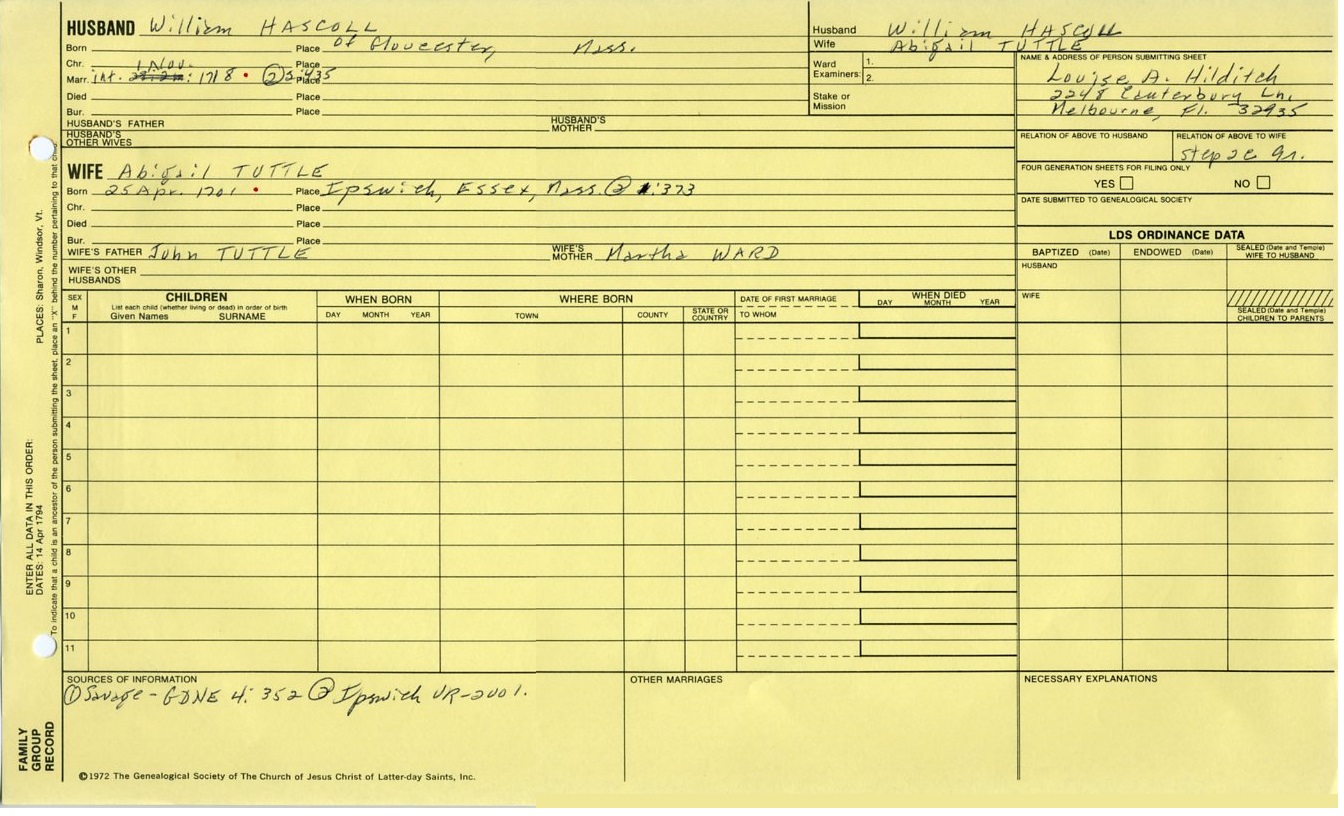 HUSBAND William HASCOLL
Born Place of Gloucester, Mass.
Chr. Place
1 Nov.
Marr. int. : 1718 • ② 2:435 Place
Died Place
Bur. Place
HUSBAND'S FATHER HUSBAND'S MOTHER
HUSBAND'S OTHER WIVES
WIFE Abigail TUTTLE
Born 25 Apr. 1701 • Place Ipswich, Essex, Mass. ② 1:373
Chr. Place
Died Place
Bur. Place
WIFE'S FATHER John TUTTLE WIFE'S MOTHER Martha WARD
WIFE'S OTHER HUSBANDS
Husband William HASCOLL
Wife Abigail TUTTLE
Ward Examiners: 1.
2.
Stake or Mission
NAME & ADDRESS OF PERSON SUBMITTING SHEET
Louise A. Hilditch
2248 Canterbury Ln.
Melbourne, Fl. 32935
RELATION OF ABOVE TO HUSBAND RELATION OF ABOVE TO WIFE
step 2c gr.
FOUR GENERATION SHEETS FOR FILING ONLY
YES NO
DATE SUBMITTED TO GENEALOGICAL SOCIETY
LDS ORDINANCE DATA
BAPTIZED (Date) ENDOWED (Date) SEALED (Date and Temple) WIFE TO HUSBAND
HUSBAND
WIFE
SEALED (Date and Temple) CHILDREN TO PARENTS
SEX M F
CHILDREN
List each child (whether living or dead) in order of birth
Given Names SURNAME
WHEN BORN
DAY MONTH YEAR
WHERE BORN
TOWN COUNTY STATE OR COUNTRY
DATE OF FIRST MARRIAGE
TO WHOM
WHEN DIED
DAY MONTH YEAR
1
2
3
4
5
6
7
8
9
10
11
SOURCES OF INFORMATION
① Savage - GDNE 4:352 ② Ipswich VR-2001.
OTHER MARRIAGES
NECESSARY EXPLANATIONS
©1972 The Genealogical Society of The Church of Jesus Christ of Latter-day Saints, Inc.
FAMILY GROUP RECORD
ENTER ALL DATA IN THIS ORDER:
DATES: 14 Apr 1794
PLACES: Sharon, Windsor, Vt.
To indicate that a child is an ancestor of the person submitting the sheet, place an "X" behind the number pertaining to that